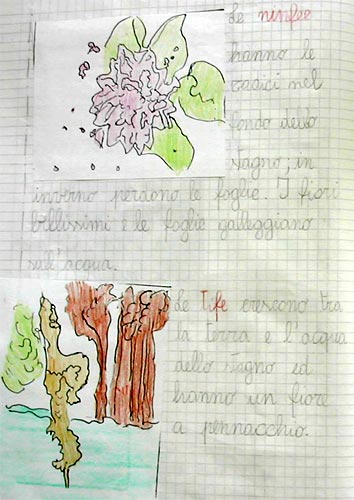 Le ninfee
hanno le
radici nel
fondo dello
stagno; in
inverno perdono le foglie. I fiori
bellissimi e le foglie galleggiano
sull'acqua.
Le Tife crescono tra
la terra e l'acqua
dello stagno ed
hanno un fiore
a pennacchio.